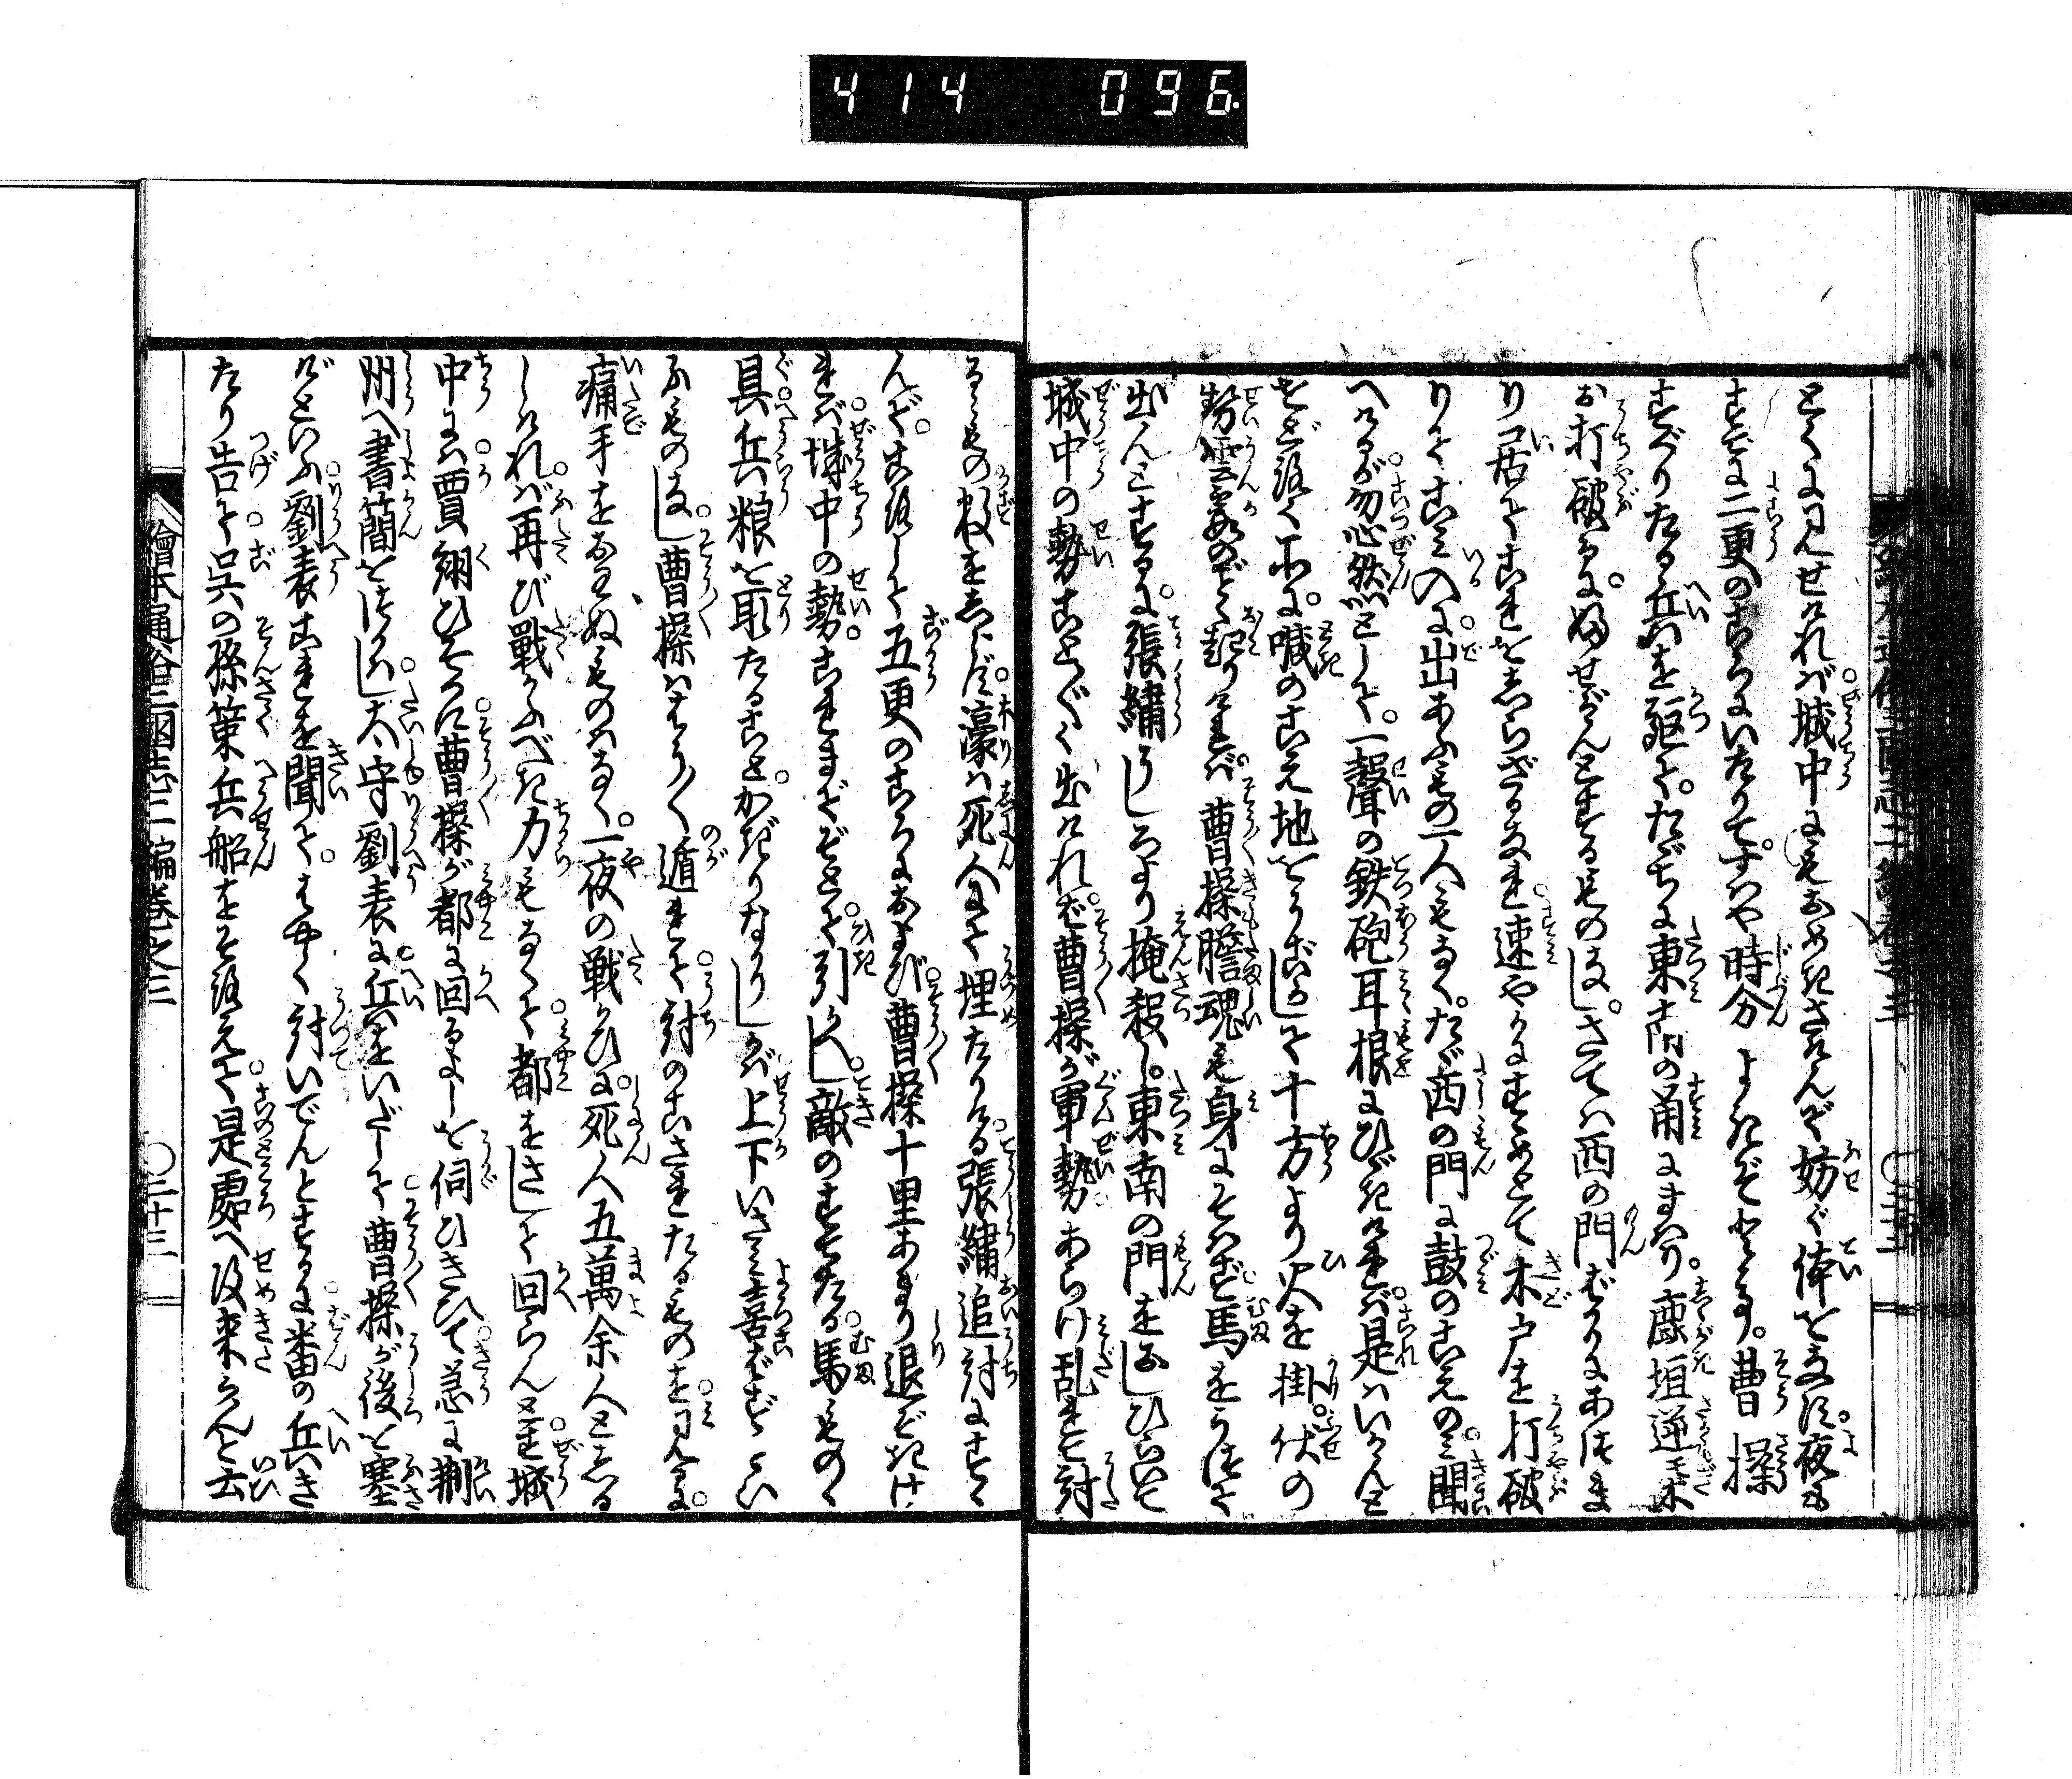 414 096
とくに見せければ城中にもおめきさけんで妨ぐ体をなし夜も
すでに二更のころにいたりて。すはや時分よきぞとて。曹操
すぐりたる兵を駆て。たゞちに東南の角にまはり。鹿垣逆茂木
お打破るに。ふせがんとするものなし。さては西の門ばかりにあつま
り居てこれをしらざるなれ速やかにすゝめとて木戸を打破
りてすゝみ入に出あふもの一人もなく。たゞ西の門に鼓のこえのみ聞
へけるが忽然として。一聲の鉄砲耳根にひゞきければ是はいかんと
をどろく所に。喊のこえ地をうごかして十方より火を掛。伏の
勢雲霞のごとく起りければ。曹操膽魂も身にそはず馬をかへして
出んとするに。張繍うしろより掩殺し。東南の門をおしひらいて
城中の勢ことごとく出ければ曹操が軍勢あらけ乱れて討
るゝもの数をしらず。濠は死人にて埋たりける。張繍追討にすゝ
んで。ころしそ五更のころにおよび曹操十里あまり退ぞきけ
れば城中の勢。これまでぞとて引かへし。敵のすてたる馬ものゝ
具兵粮を取たること。かぎりなかりしかば上下いさみ喜ばずとい
ふものなし曹操はやうやく遁れて討のこされたるものを見るに。
痛手をおはぬものはなく。一夜の戦ひに死人五萬余人としる
しければ再び戰かふべき力もなくて都をさして回らんとす城
中には賈詡ひそかに曹操が都に回るよしを伺ひきひて急に荊
州へ書簡をつかはし。太守劉表に兵をいだして曹操が後を塞
げといふ劉表これを聞て。はやく討いでんとするに番の兵き
たり告て呉の孫策兵船をそろえて是處へ攻来らんと云
繪本通俗三國志二編巻之三　〇二十三